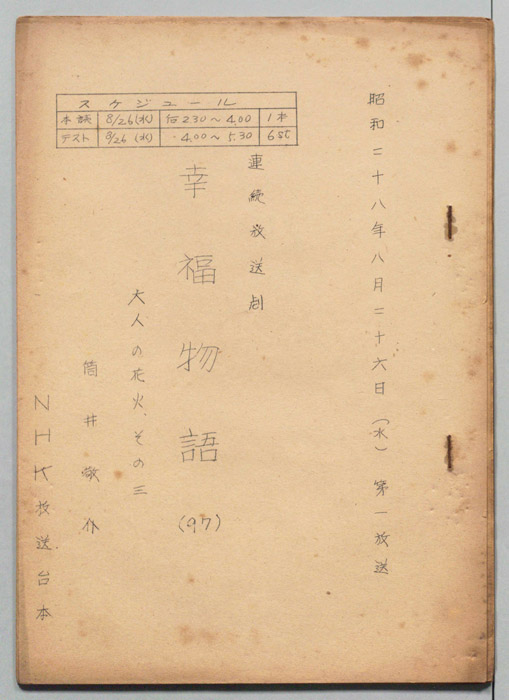 昭和二十八年八月二十六日（水）第一放送
連続放送劇
幸福物語（97）
大人の花火、その三
筒井敬介
NHK放送台本
スケジュール
本読 8/26(水) 230～4.00 1本
テスト 8/26(水) 4.00～5.30 6st